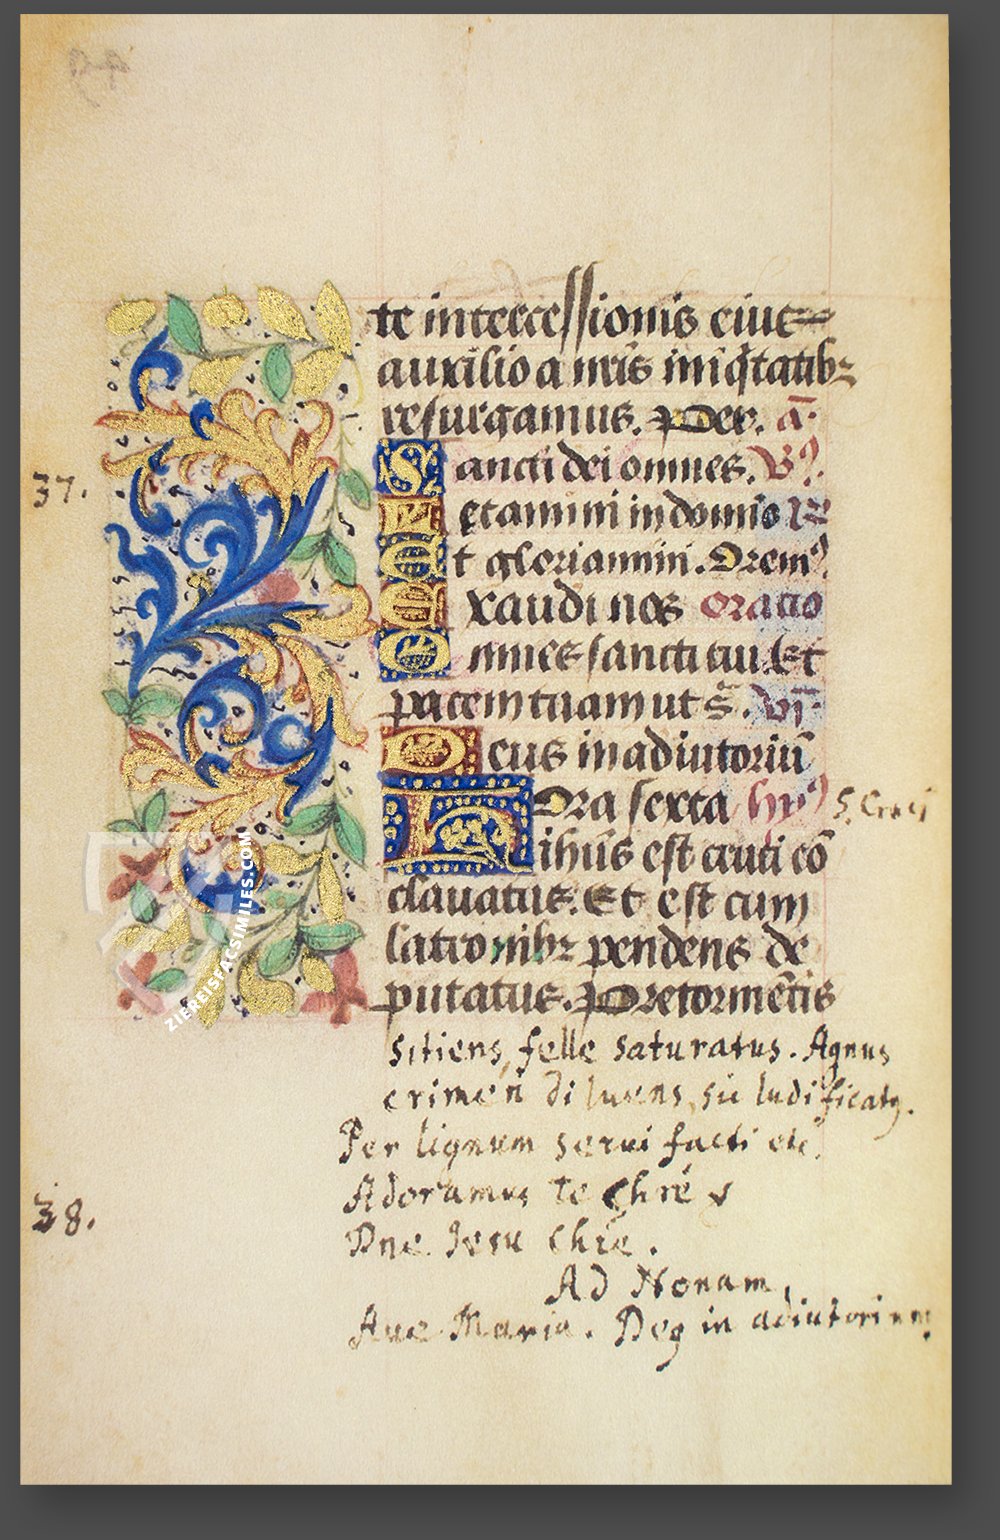 49
te intercessionis eiut
auxilio a nr̄is iniq̄tatibꝫ
resurgamus. Per. a̅.
Sancti dei omnes. V̷.
Letamini in domino R̷
Et gloriamini. Orem⁹.
Exaudi nos oratio
Omnes sancti tui. Et
pacem tuam ut s̄. vi.
Deus in adiutoriū
37.
Hora sexta hy⁹ S. Cruci
ihūs est cruci cō
clauatus. Et est cum
latronibꝫ pendens de
putatus. Pre tormētis
sitiens, felle saturatus. Agnus
crimen diluens, sic ludificatꝰ.
Per lignum serui facti etc.
Adoramus te Chrē
38.
Dne Jesu Chrē.
Ad Nonam,
Aue Maria. Deꝰ in adiutorium
ZIEREISFACSIMILES.COM